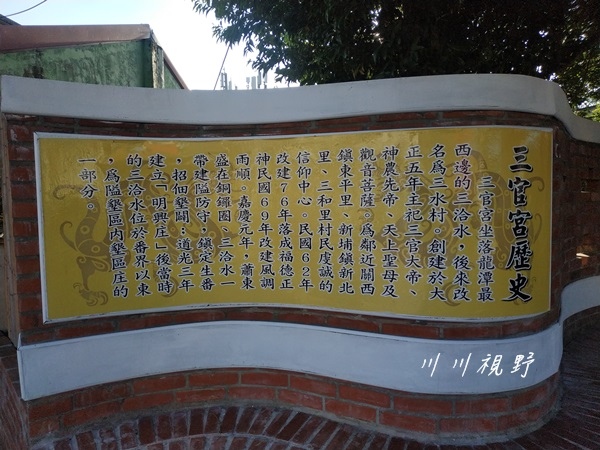 三官宮歷史
三官宮坐落龍潭最
西邊的三洽水，後來改
名為三水村。創建於大
正五年主祀三官大帝、
神農先帝、天上聖母及
觀音菩薩。為鄰近關西
鎮東平里、新埔鎮新北
里、三和里村民虔誠的
信仰中心。民國62年
改建76年落成福德正
神民國69年改建風調
雨順。嘉慶元年，蕭東
盛在銅鑼圈、三洽水一
帶建隘防守，鎮定生番
，招佃墾闢，道光三年
建立「明興庄」後當時
的三洽水位於番界以東
，為隘墾區內墾區庄的
一部分。
川川視野